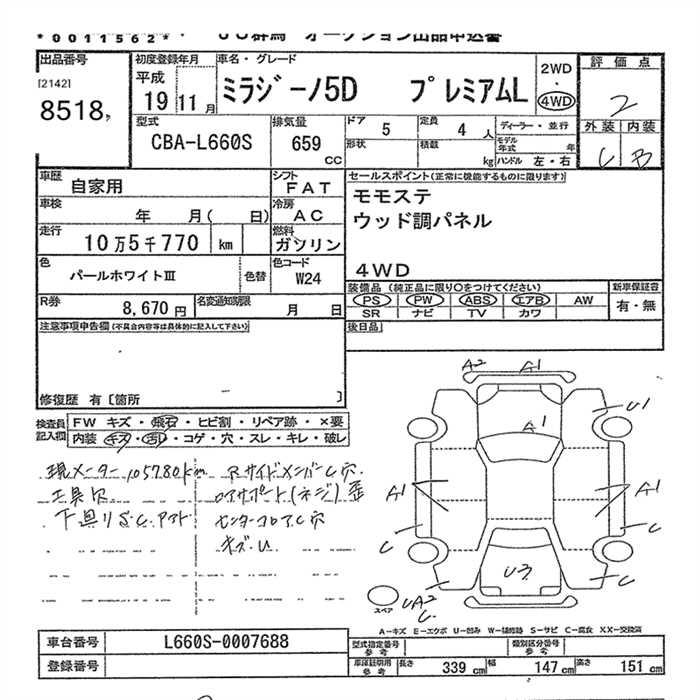 *0011562*
JU群馬 オークション出品申込書
出品番号
[2142]
8518
初度登録年月
平成
19 11月
車名・グレード
ミラジーノ5D プレミアムL
2WD
・
4WD
評価点
2
外装 内装
C B
型式
CBA-L660S
排気量
659
CC
ドア 5
定員 4 人
ディーラー・並行
形状
積載 kg
モデル年式 年
ハンドル 左・右
車歴
自家用
シフト
FAT
セールスポイント(正常に機能するものに限ります)
モモステ
ウッド調パネル
4WD
車検
年 月( 日)
冷房
AC
走行
10万5千770 km
燃料
ガソリン
色
パールホワイトIII
色替
色コード
W24
装備品 (純正品に限り○をつけてください)
新車保証書
PS PW ABS エアB AW
有・無
SR ナビ TV カワ
R券
8,670円
名変通知期限
月 日
後日品
注意事項申告欄(不具合内容等は具体的に記入して下さい)
修復歴 有[箇所 ]
検査員
記入欄
FW キズ・飛石・ヒビ割・リペア跡・×要
内装 キズ・汚れ・コゲ・穴・スレ・キレ・破レ
現メーター 105780km
工具欠
下廻りS.C.アト
RサイドメンバーC穴
コアサポート(ネジ)歪
センターフロアC穴
キズ.U
A2 A1
U1
A1
A1 A1
C C
U3
C
UA2
C
スペア
A-キズ E-エクボ U-凹み W-補修跡 S-サビ C-腐食 XX-交換済
車台番号
L660S-0007688
登録番号
型式指定番号
参考
類別区分番号
参考
車庫証明用
参考
長さ 339 cm 幅 147 cm 高さ 151 cm